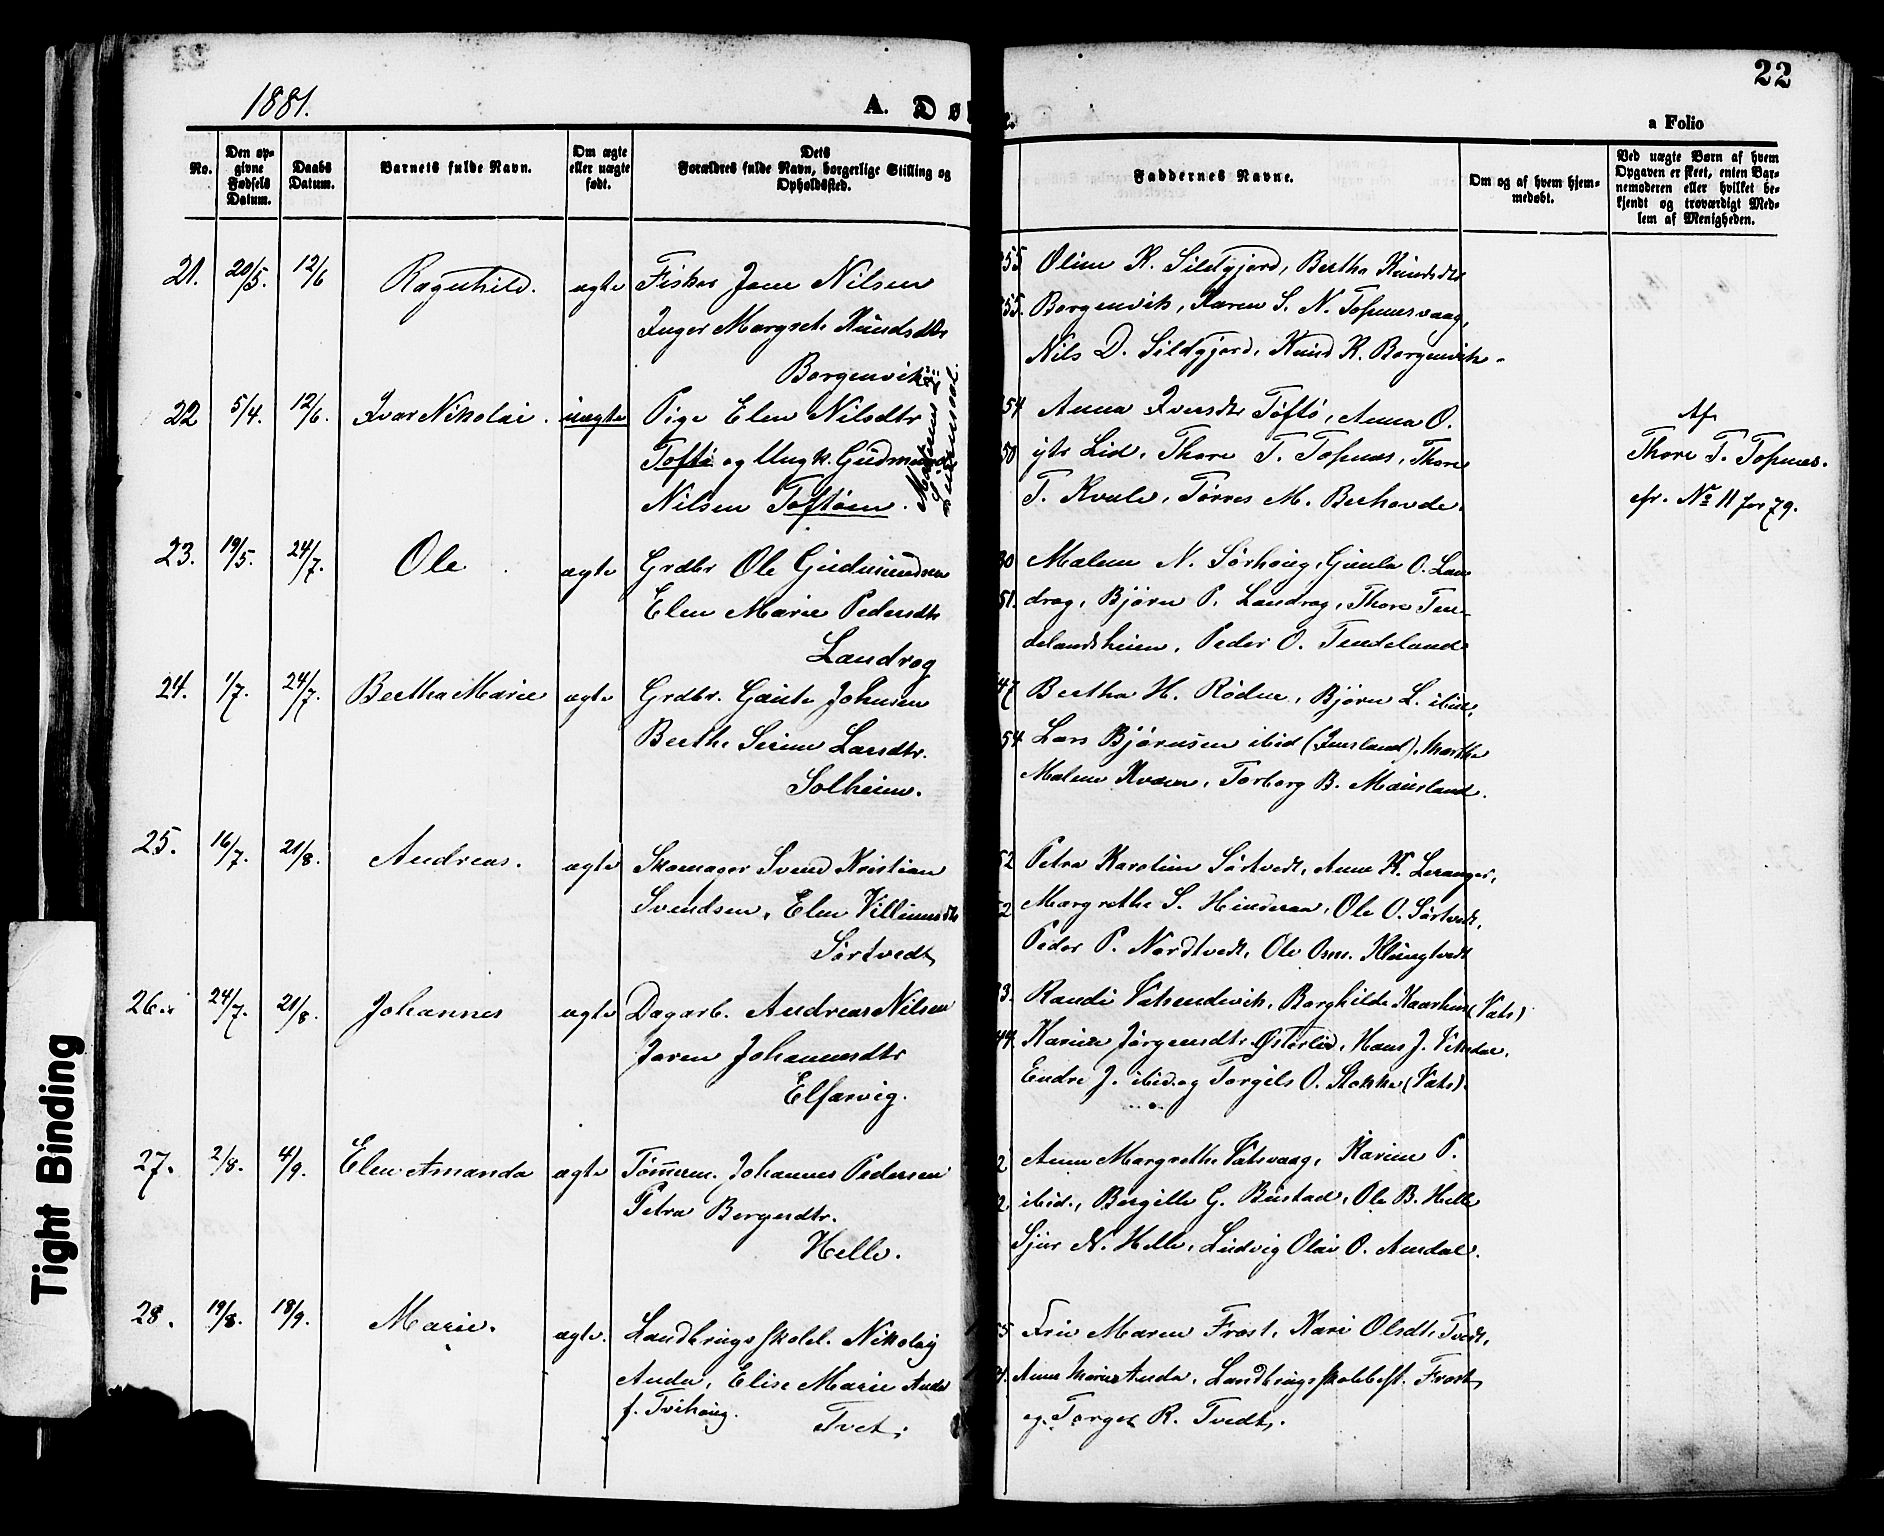 22
1881.
A. Døb
a Folio
No.
Den opgivne Fødsels Datum.
Daabs Datum.
Barnets fulde Navn.
Om ægte eller uægte født.
Dets Forældres fulde Navn, borgerlige Stilling og Opholdssted.
Faddernes Navne.
Om og af hvem hjemmedøbt.
Ved uægte Børn af hvem Opgaven er skeet, enten Barnemoderen eller hvilket bekjendt og troværdigt Medlem af Menigheden.
21. 20/5. 12/6 Ragnhild. ægte Fisker Jone Nilsen
Inger Margrete Knudsdtr
Borgenvik
55 Oline K. Sildgjerd, Bertha Knudsdtr
55. Borgenvik, Karen S. N. Topnesvaag,
Nils D. Sildgjerd, Knud K. Borgenvik.
22 5/4. 12/6. Ivar Nikolai. uægte Pige Elen Nilsdtr
Toftø og Ungk. Gudmund
Nilsen Toftøen.
54 Anna Iversdtr Toftø, Anna O.
50 ytr Lid, Thore T. Topnes, Thore
T. Kvale, Tørres M. Berhovde.
Af
Thore T. Topnes.
cfr. No 11 for 79.
23. 19/5. 24/7. Ole ægte Grdbr Ole Gudmundsen
Elen Marie Pedersdtr
Landrog
30 Malene N. Sørhoug, Gunla O. Lan
51. drog, Bjørn P. Landrog, Thore Ten-
delandsheien, Peder O. Tendeland
24. 1/7. 24/7. Bertha Marie ægte Grdbr. Gaute Johnsen
Berthe Serine Larsdtr.
Solheim.
47 Bertha H. Rødne, Bjørn L. ibid,
54 Lars Bjørnsen ibid (Imsland), Marthe
Malene Kværn, Torborg B. Mæusland.
25. 16/7. 21/8. Andreas. ægte Skomager Svend Kristian
Svendsen, Elen Villumsdtr
Sørtvedt
52 Petra Karoline Sørtvedt, Anne K. Leranger,
52 Margrethe S. Hinderaa, Ole O. Sørtvedt,
Peder P. Nordtvedt, Ole Osm. Klungtvedt
26. 24/7. 21/8. Johannes ægte Dagarb. Andreas Nilsen
Joren Johannesdtr
Elfarvig.
3. Randi Vatsendvik, Borghilde Kaarhus (Vats)
44. Karine Jørgensdtr Østerlid, Hans J. Vikedal,
Endre J. ibid. og Torgils O. Stokke (Vats).
27. 2/8. 4/9. Elen Amanda ægte Tømerm. Johannes Pedersen
Petra Bergesdtr.
Helle.
2 Anne Margrethe Vatsvaag, Karine P.
2 ibid., Bergitte G. Bustad, Ole B. Helle
Sjur N. Helle, Ludvig Olai O. Amdal.
28. 19/8. 18/9. Marie. ægte. Landbrugsskolel. Nikolaj
Anda, Elise Marie Anda
f. Tvihoug. Tvet.
5 Frue Maren Frost, Kari Olsdt. Tvedt,
4. Anne Marie Anda, Landbrugsskolebest. Frost,
og Torger R. Tvedt.
Tight Binding